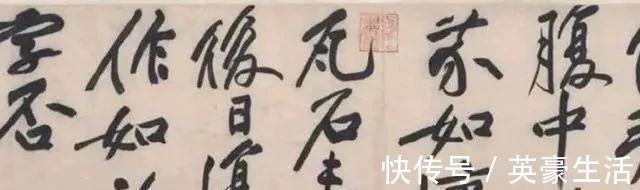 腹中
蒙如
瓦石未
後日復
作如
字否
快传号 / 英豪生活